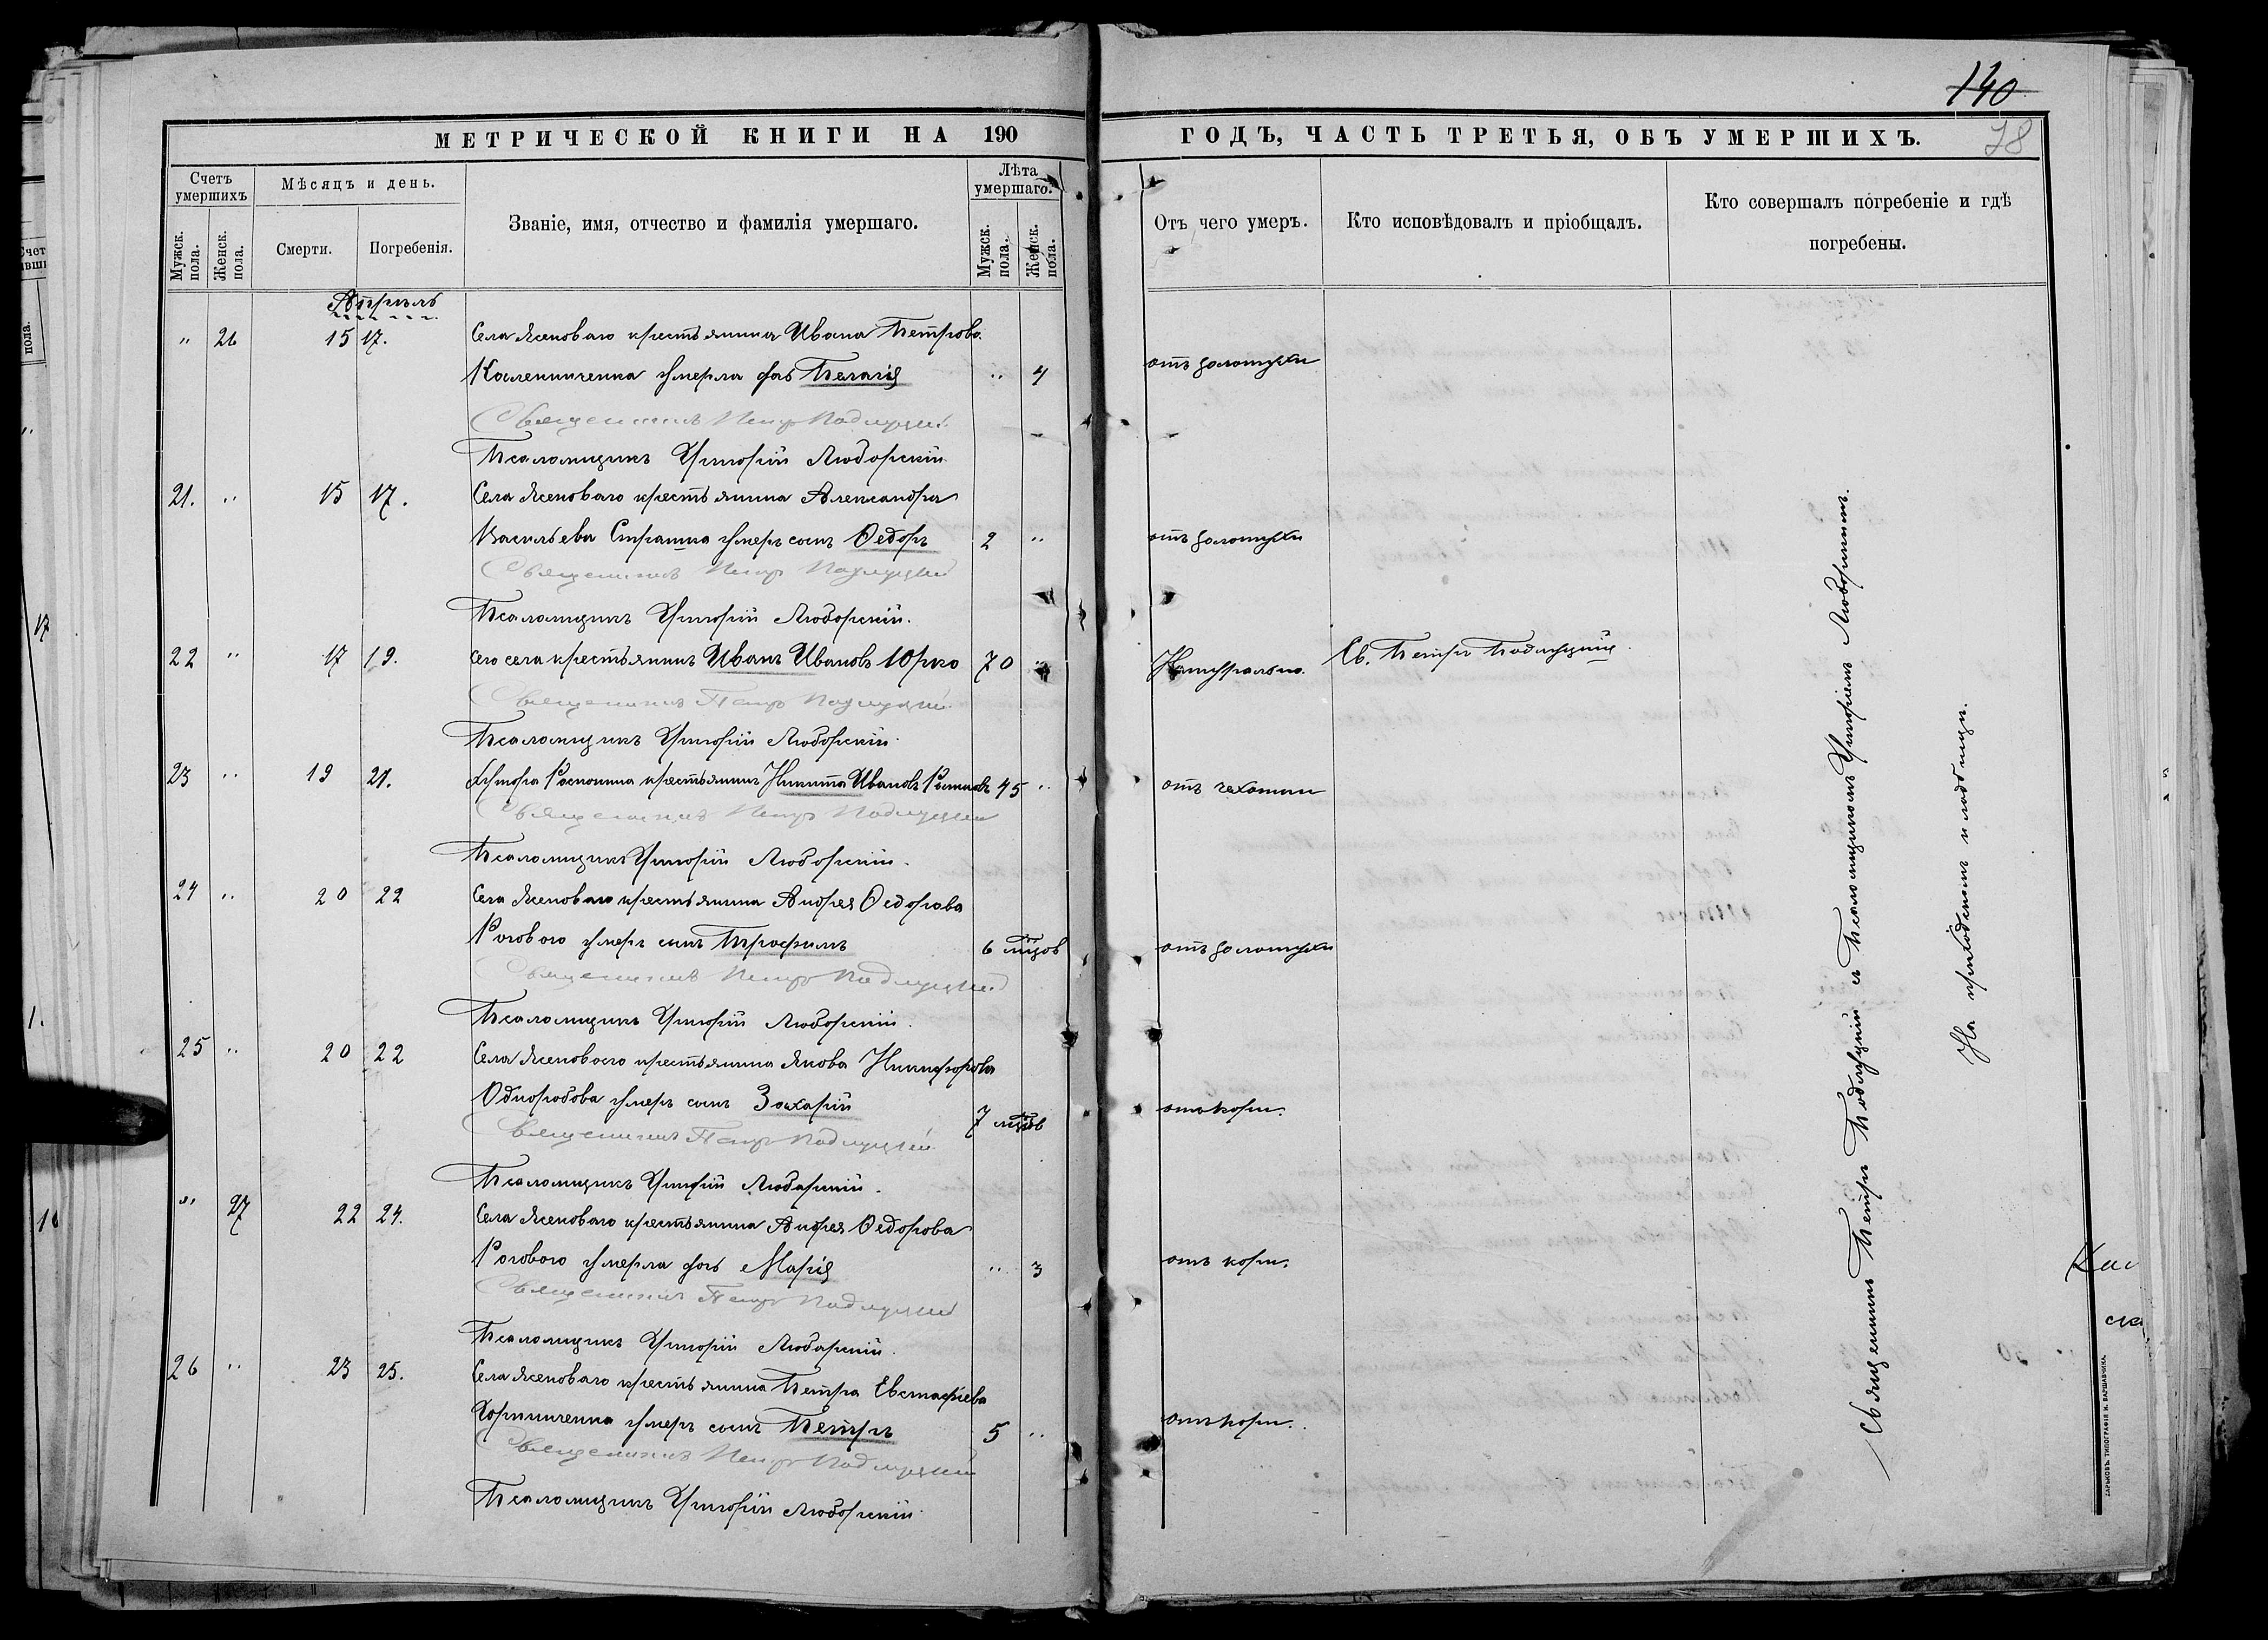 140
78
МЕТРИЧЕСКОЙ КНИГИ НА 190
ГОДЪ, ЧАСТЬ ТРЕТЬЯ, ОБЪ УМЕРШИХЪ.
Счетъ умершихъ
Мѣсяцъ и день.
Званіе, имя, отчество и фамилія умершаго.
Лѣта умершаго.
Отъ чего умеръ.
Кто исповѣдовалъ и пріобщалъ.
Кто совершалъ погребеніе и гдѣ погребены.
Мужск. пола.
Женск. пола.
Смерти.
Погребенія.
Мужск. пола.
Женск. пола.
Апрѣль
" 26 15 17. Села Ясеноваго крестьянина Ивана Петрова
умерла дочь Пелагія " 4 отъ золотухи
Священникъ Петръ Подлуцкій
Псаломщикъ Григорій Люборскій
21. " 15 17. Села Ясеноваго крестьянина Александра
Васильева Страшка умеръ сынъ Ѳедоръ 2 " отъ золотухи
Священникъ Петръ Подлуцкій
Псаломщикъ Григорій Люборскій.
22 " 17 19. Сего села крестьянинъ Иванъ Ивановъ Юрко 70 " Натурально. Св. Петръ Подлуцкій.
Священникъ Петръ Подлуцкій
Псаломщикъ Григорій Люборскій.
23 " 19 21. Хутора крестьянинъ Никита Ивановъ 45 " отъ чахотки
Священникъ Петръ Подлуцкій
Псаломщикъ Григорій Люборскій.
24 " 20 22 Села Ясеноваго крестьянина Андрея Ѳедорова
Рогового умеръ сынъ Трофимъ 6 мцов отъ золотухи
Священникъ Петръ Подлуцкій
Псаломщикъ Григорій Люборскій.
25 " 20 22 Села Ясеноваго крестьянина Якова Никифорова
Одноробова умеръ сынъ Захарій 7 мцов отъ кори.
Священникъ Петръ Подлуцкій
Псаломщикъ Григорій Люборскій.
" 27 22 24. Села Ясеноваго крестьянина Андрея Ѳедорова
Рогового умерла дочь Марія " 3 отъ кори.
Священникъ Петръ Подлуцкій
Псаломщикъ Григорій Люборскій.
26 " 23 25. Села Ясеноваго крестьянина Петра Евстафіева
умеръ сынъ Петръ 5 " отъ кори.
Священникъ Петръ Подлуцкій
Псаломщикъ Григорій Люборскій
Священникъ Петръ Подлуцкій съ Псаломщикомъ Григоріемъ Люборскимъ.
На приходскомъ кладбищѣ.
ХАРЬКОВЪ. ТИПОГРАФІЯ И. ВАРШАВЧИКА.